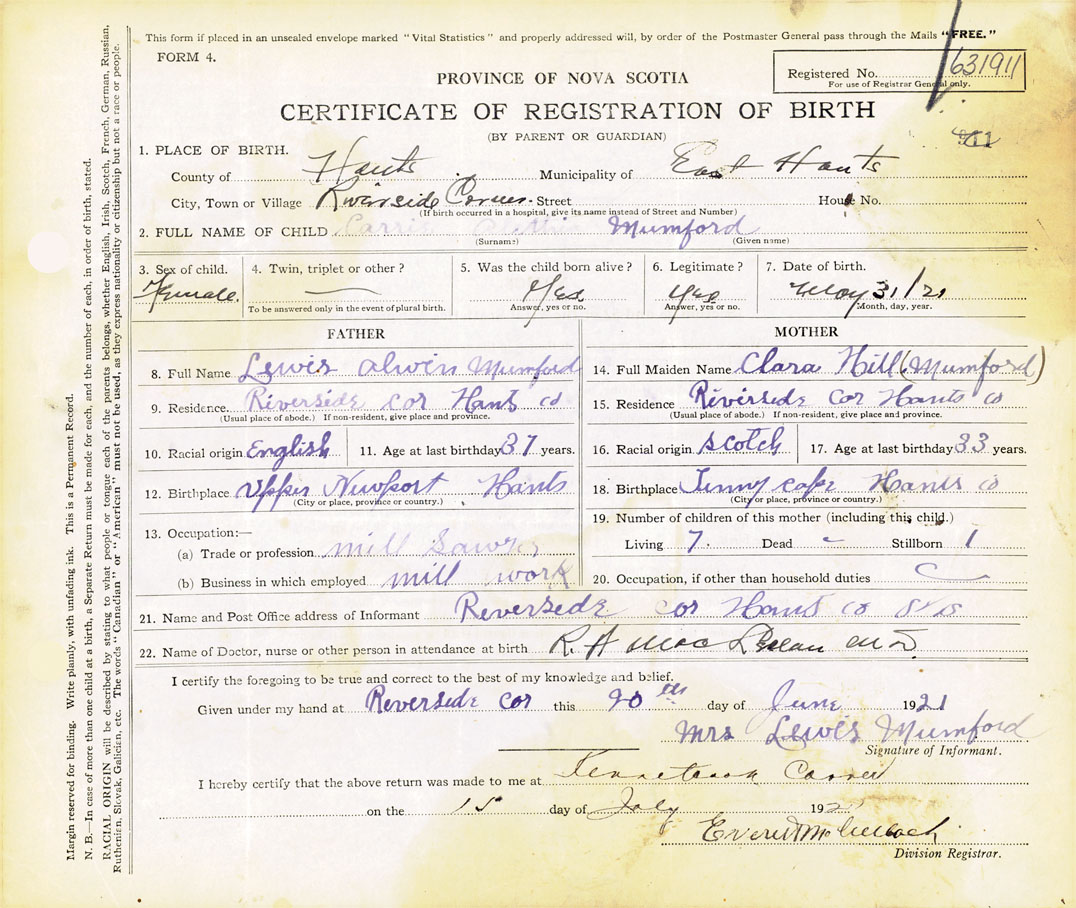 This form if placed in an unsealed envelope marked "Vital Statistics" and properly addressed will, by order of the Postmaster General pass through the Mails "FREE."
FORM 4.
PROVINCE OF NOVA SCOTIA
Registered No. 631911
For use of Registrar General only.
CERTIFICATE OF REGISTRATION OF BIRTH
(BY PARENT OR GUARDIAN)
1. PLACE OF BIRTH.
County of Hants Municipality of East Hants
City, Town or Village Riverside Corner Street House No.
(If birth occurred in a hospital, give its name instead of Street and Number)
2. FULL NAME OF CHILD Mumford
(Surname) (Given name)
3. Sex of child. 4. Twin, triplet or other? 5. Was the child born alive? 6. Legitimate? 7. Date of birth.
Female. — Yes Yes May 31/21
To be answered only in the event of plural birth. Answer, yes or no. Answer, yes or no. Month, day, year.
FATHER
8. Full Name Lewis Alwin Mumford
9. Residence Riverside Cor Hants co
(Usual place of abode.) If non-resident, give place and province.
10. Racial origin English 11. Age at last birthday 37 years.
12. Birthplace Upper Newport Hants
(City or place, province or country.)
13. Occupation:—
(a) Trade or profession mill
(b) Business in which employed mill work
MOTHER
14. Full Maiden Name Clara Hill (Mumford)
15. Residence Riverside Cor Hants co
(Usual place of abode.) If non-resident, give place and province.
16. Racial origin scotch 17. Age at last birthday 33 years.
18. Birthplace Tenny cape Hants co
(City or place, province or country.)
19. Number of children of this mother (including this child.)
Living 7. Dead - Stillborn 1
20. Occupation, if other than household duties
21. Name and Post Office address of Informant Reverside cor Hants co
22. Name of Doctor, nurse or other person in attendance at birth R. A MacLellan M D.
I certify the foregoing to be true and correct to the best of my knowledge and belief.
Given under my hand at Reverside cor this 20th day of June 1921
Mrs Lewis Mumford
Signature of Informant.
I hereby certify that the above return was made to me at
on the 15 day of July 192
Division Registrar.
Margin reserved for binding. Write plainly, with unfading ink. This is a Permanent Record.
N. B.—In case of more than one child at a birth, a Separate Return must be made for each, and the number of each, in order of birth, stated.
RACIAL ORIGIN will be described by stating to what people or tongue each of the parents belongs, whether English, Irish, Scotch, French, German, Russian,
Ruthenian, Slovak, Galician, etc. The words "Canadian" or "American" must not be used, as they express nationality or citizenship but not a race or people.